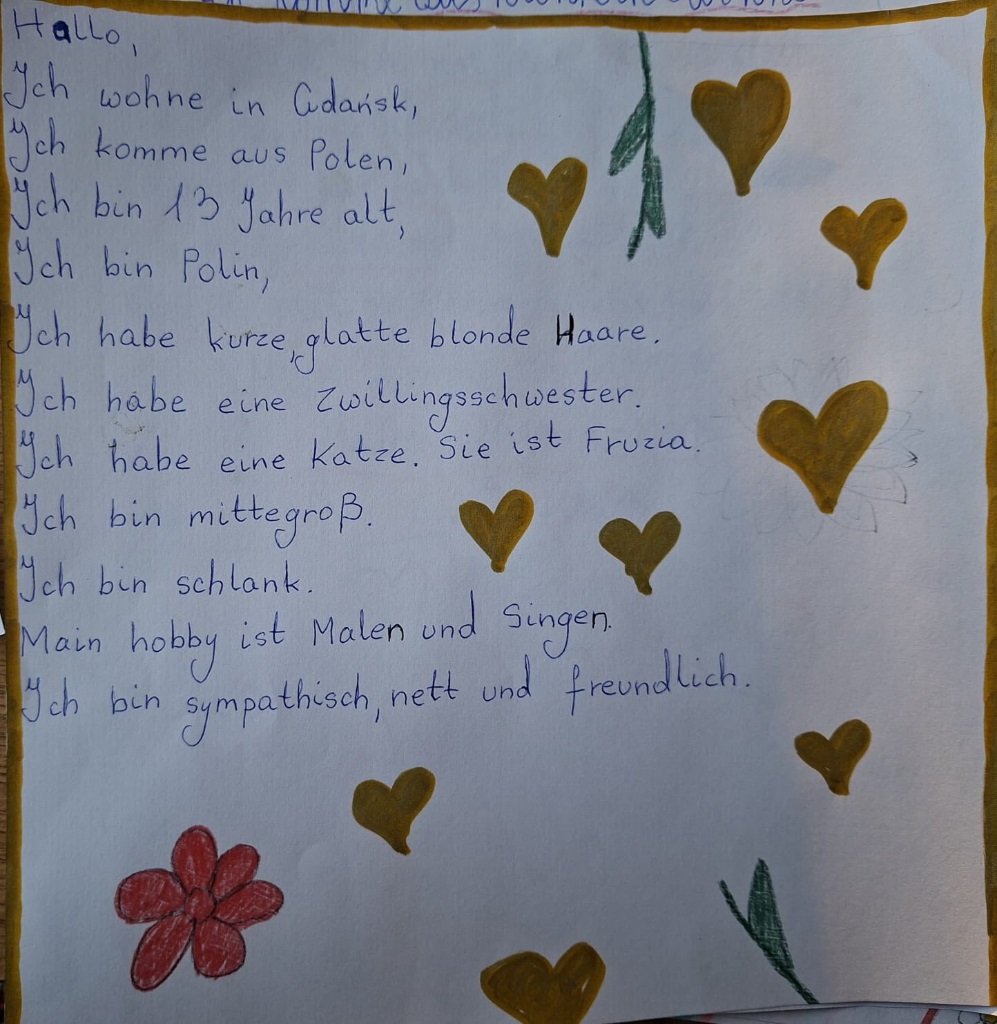 Hallo,
Ich wohne in Gdańsk,
Ich komme aus Polen,
Ich bin 13 Jahre alt,
Ich bin Polin,
Ich habe kurze, glatte blonde Haare.
Ich habe eine Zwillingsschwester.
Ich habe eine Katze. Sie ist Fruzia.
Ich bin mittegroß.
Ich bin schlank.
Main hobby ist Malen und Singen.
Ich bin sympathisch, nett und freundlich.